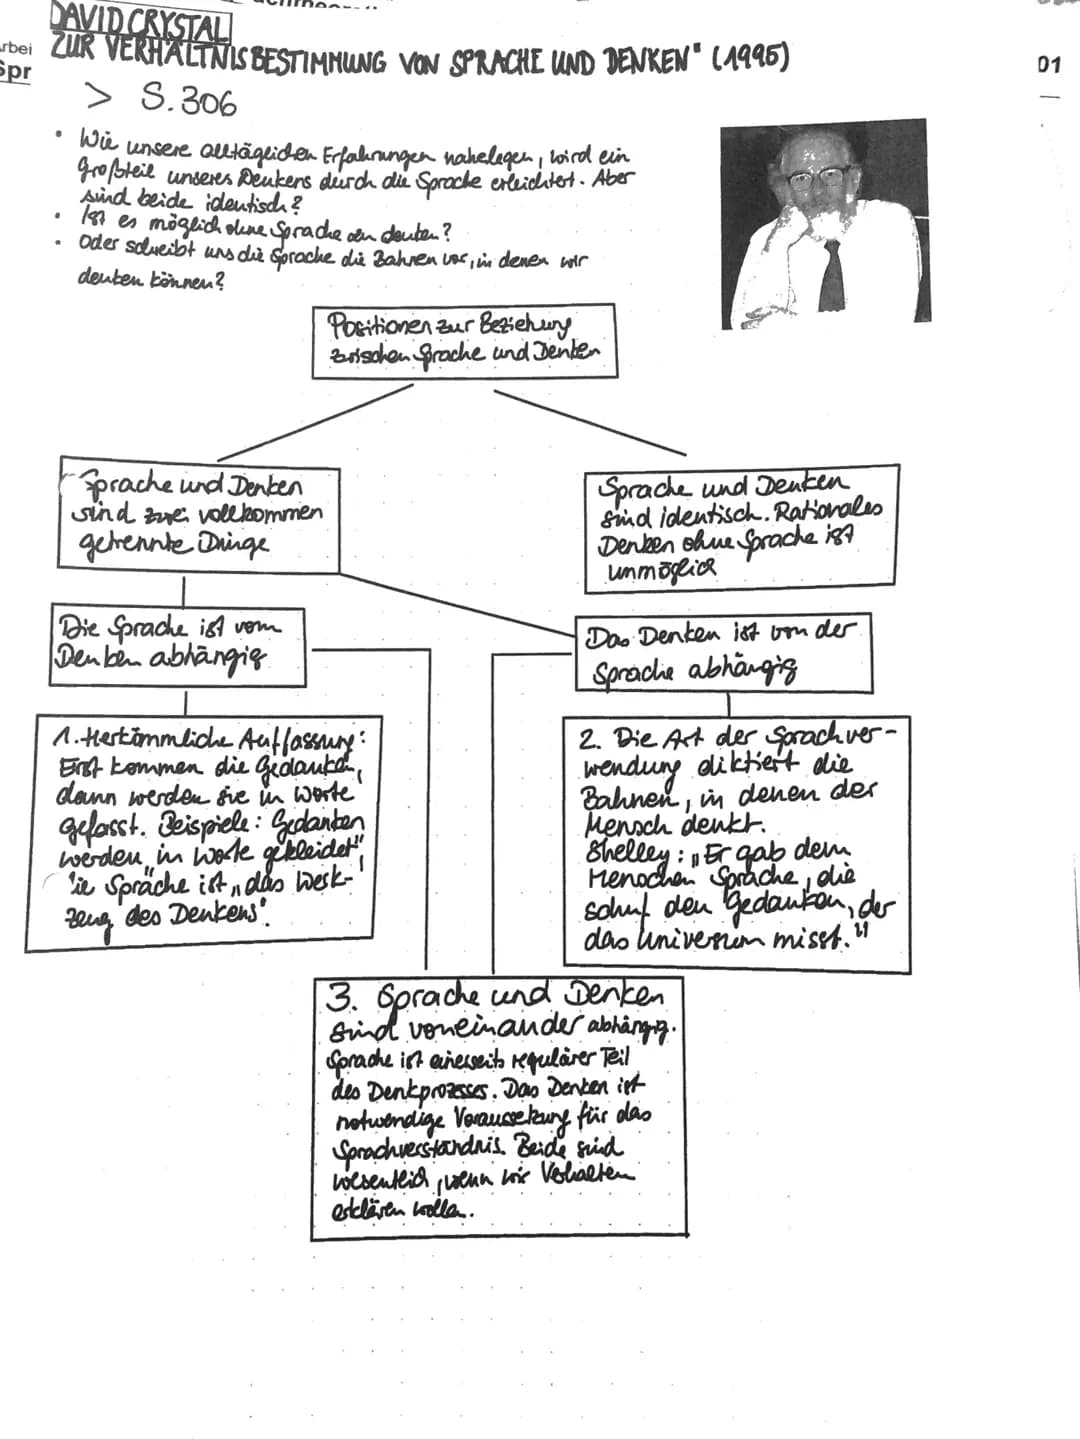 DAVID CRYSTAL
ZUR VERHÄLTNISBESTIMMUNG VON SPRACHE UND DENKEN" (1995)
rbei
Spr
01
> S. 306
• Wie unsere alltäglichen Erfahrungen nahelegen, wird ein
Großteil unseres Denkens durch die Sprache erleichtert. Aber
sind beide identisch?
• Ist es möglich ohne Sprache zu denken?
• Oder schreibt uns die Sprache die Bahnen vor, in denen wir
denken können?
Positionen zur Beziehung
zwischen Sprache und Denken
Sprache und Denken
sind zwei vollkommen
getrennte Dinge
Sprache und Denken
sind identisch. Rationales
Denken ohne Sprache ist
unmöglich
Die Sprache ist vom
Denken abhängig
Das Denken ist von der
Sprache abhängig
1. Herkömmliche Auffassung:
Erst kommen die Gedanken,
dann werden sie in Worte
gefasst. Beispiele: Gedanken
werden in Worte gekleidet",
ie Sprache ist „das Werk-
zeug des Denkens".
2. Die Art der Sprachver-
wendung diktiert die
Bahnen, in denen der
Mensch denkt.
Shelley: „Er gab dem
Menschen Sprache, die
schuf den Gedanken, der
das Universum misst."
3. Sprache und Denken
sind voneinander abhängig.
Sprache ist einerseits regulärer Teil
des Denkprozesses. Das Denken ist
notwendige Voraussetzung für das
Sprachverständnis. Beide sind
wesentlich, wenn wir Verhalten
erklären wollen.